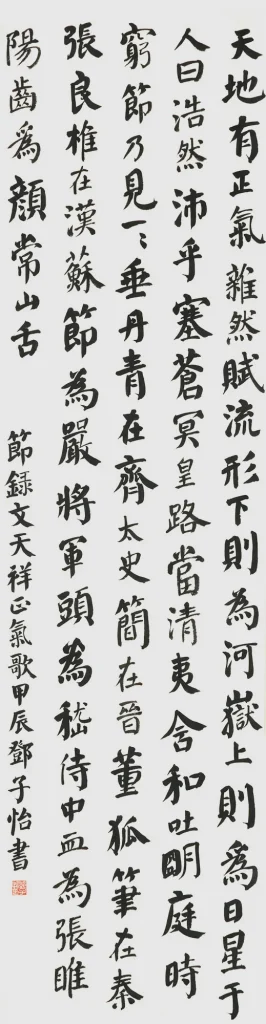 天地有正氣雜然賦流形下則為河嶽上則爲日星于
人曰浩然沛乎塞蒼冥皇路當清夷含和吐明庭時
窮節乃見一〻垂丹青在齊太史簡在晉董狐筆在秦
張良椎在漢蘇節為嚴將軍頭為嵇侍中血為張睢
陽齒爲顏常山舌
節録文天祥正氣歌甲辰鄧子怡書